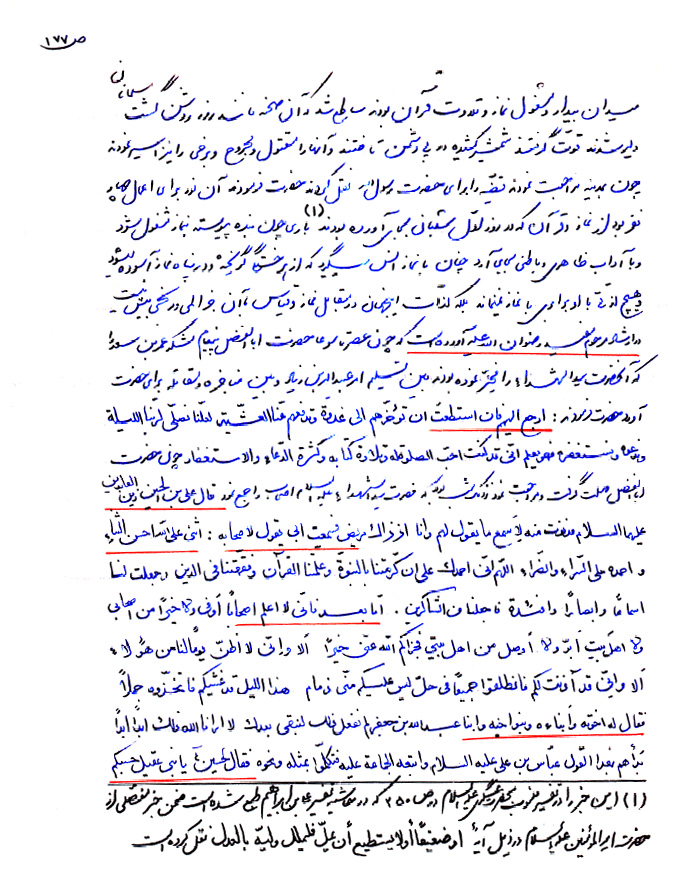 ص ۱۷۷
میدان بیدار و مشغول نماز و تلاوت قرآن بودند ساطع شد که آن صحنه مانند روز روشن گشت مسلمانان
دلیر شدند قوت گرفتند شمشیر کشیده در پی دشمن تاختند و آنها را مقتول و مجروح و برخی را نیز اسیر نمودند
چون بمدینه مراجعت نمودند قضیه را برای حضرت رسول نقل کردند حضرت فرمودند آن نور برای اعمال چهار
نفر بود از نماز و قرآن که در روز اول شعبان بجای آورده بودند (۱) باری چون بنده پیوسته بنماز مشغول شود
و با آداب ظاهری و باطنی بجای آرد چنان با نماز انس میگیرد که از هر خستگی گریخته و در پناه نماز آسوده میشود
و هیچ لذتی با او برابری با نماز ننماید بلکه لذات این جهان در مقابل نماز و قیاس با آن خیالی و رنجی بیش نیست
در ارشاد مرحوم مفید رضوان الله علیه آورده است که چون عصر تاسوعا حضرت ابا الفضل پیغام لشکر عمر بن سعد را
که آنحضرت سید الشهداء را مخیر نموده بودند بین تسلیم امر عبید الله بن زیاد و بین مناجزه و مقاتله برای حضرت
آورد حضرت فرمودند : ارجع الیهم فان استطعت ان تؤخرهم الی غدوة و تدفعهم عنا العشیة لعلنا نصلی لربنا اللیلة
و ندعوه و نستغفره فهو یعلم انی قد کنت احب الصلوة له و تلاوة کتابه و کثرة الدعاء و الاستغفار چون حضرت
ابا الفضل مهلت گرفت و مراجعت نمود نزدیک شب بود که حضرت سید الشهداء علیه السلام اصحاب را جمع نمود قال علی بن الحسین زین العابدین
علیهما السلام فدنوت منه لاسمع ما یقول لهم و انا اذ ذاک مریض فسمعت ابی یقول لاصحابه : اثنی علی الله احسن الثناء
و احمده علی السراء و الضراء اللهم انی احمدک علی ان کرمتنا بالنبوة و علمتنا القرآن و فقهتنا فی الدین و جعلت لنا
اسماعًا و ابصارًا و افئدة فاجعلنا من الشاکرین . اما بعد فانی لا اعلم اصحابًا اوفی و لا خیرًا من اصحابی
و لا اهل بیت ابرّ و لا اوصل من اهل بیتی فجزاکم الله عنی خیرًا الا و انی لا اظن یومًا لنا من هؤلاء
الا و انی قد آذنت لکم فانطلقوا جمیعًا فی حل لیس علیکم منی ذمام هذا اللیل قد غشیکم فاتخذوه جملًا
فقال له اخوته و ابناءه و بنو اخیه و ابنا عبد الله بن جعفر لم نفعل ذلک لنبقی بعدک لا ارانا الله ذلک ابدًا
بدأهم بهذا القول عباس بن علی علیه السلام و اتبعه الجماعة علیه فتکلموا بمثله و نحوه فقال الحسین ع یا بنی عقیل حسبکم
(۱) این خبر را در تفسیر منسوب بحضرت عسگری علیه السلام در ص ۲۵۰ که در حاشیه تفسیر علی بن ابراهیم طبع شده است ضمن خبر مفصلی از
حضرت امیر المؤمنین علیه السلام در ذیل آیهٔ او ضعیفًا أو لا یستطیع أن یملّ فلیملل ولیّه بالعدل نقل کرده است